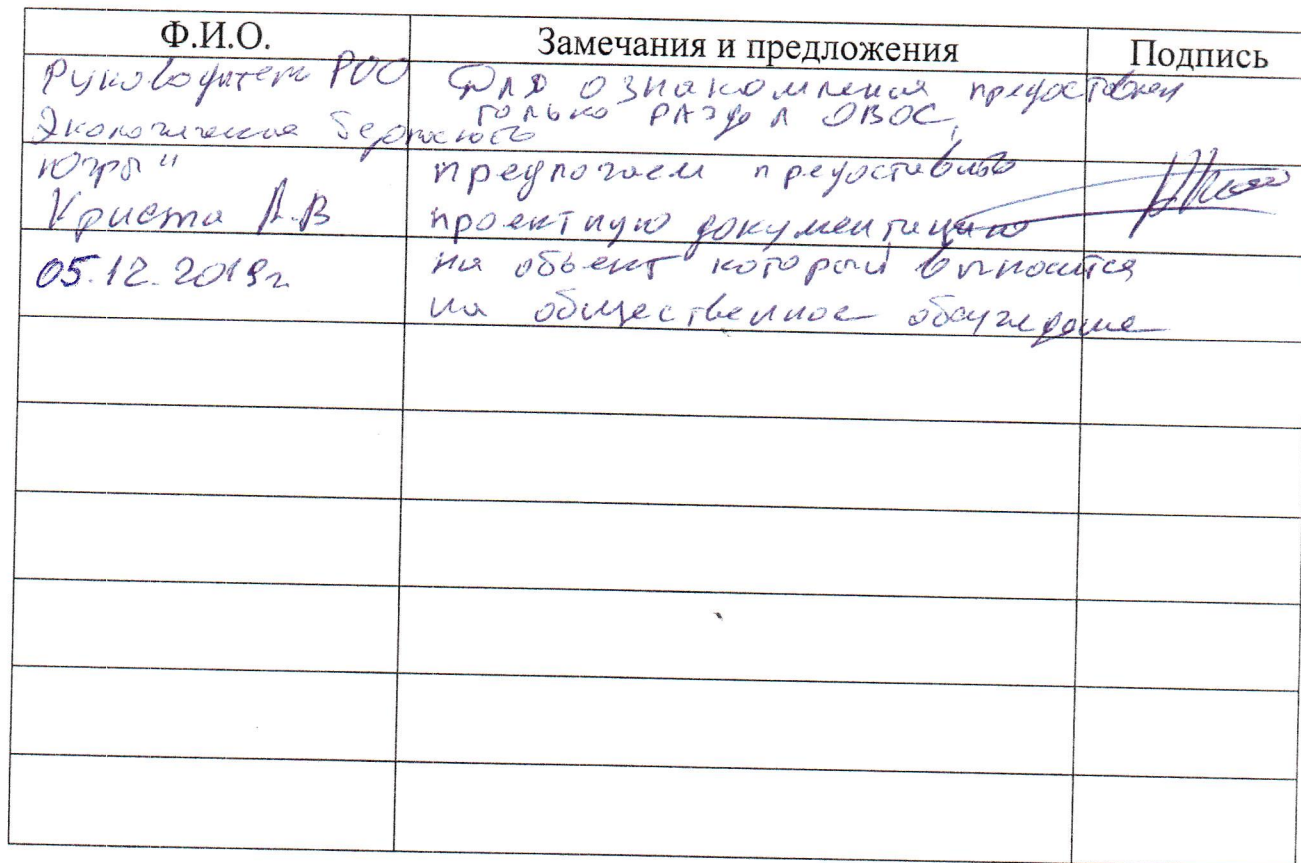 Ф.И.О.
Замечания и предложения
Подпись
Руководитель РОО
Экологическая безопасность
Югры"
Криста А.В
05.12.2019г.
Для ознакомления предоставлен
только раздел ОВОС,
предлагаем предоставить
проектную документацию
на объект который выносится
на общественное обсуждение